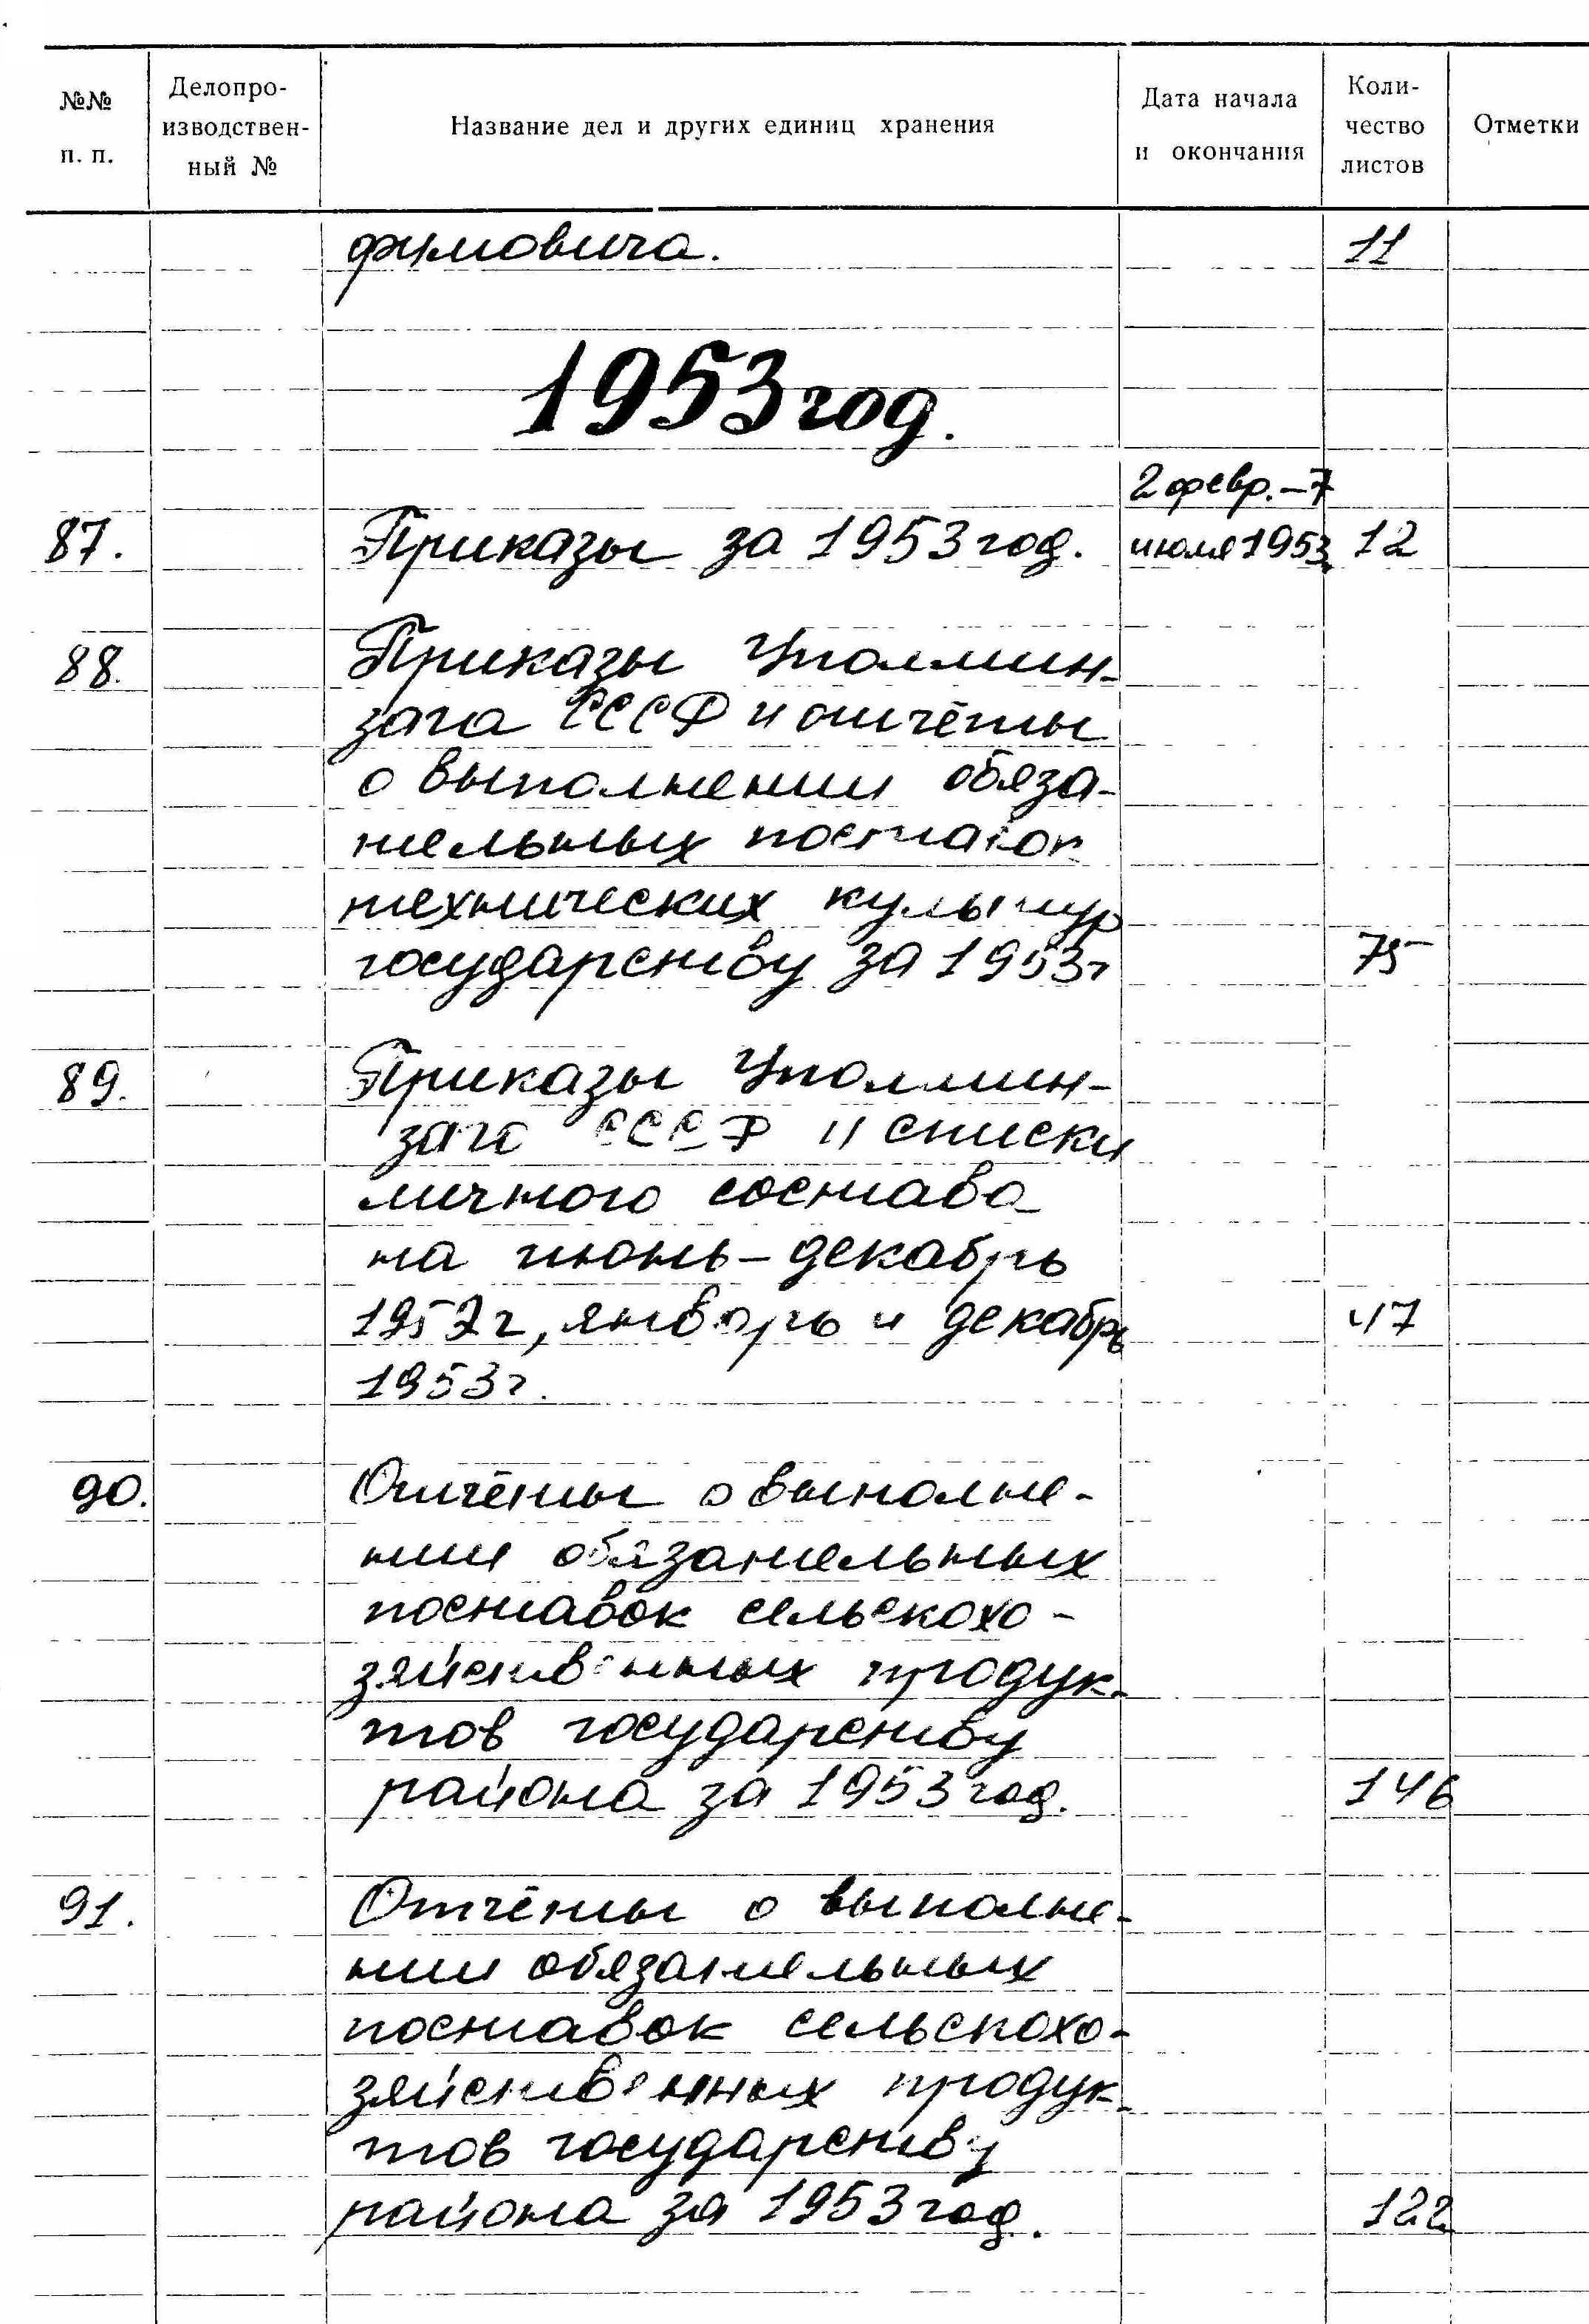 №№ п. п.
Делопро-
изводствен-
ный №
Название дел и других единиц хранения
Дата начала
и окончания
Коли-
чество
листов
Отметки
фимовича. 11
1953 год.
2 февр. – 7
87. Приказы за 1953 год. июля 1953 12
88. Приказы Уполмин-
зага СССР и отчёты
о выполнении обяза-
тельных поставок
технических культур
государству за 1953г 75
89. Приказы Уполмин-
зага СССР и списки
личного состава
на июнь – декабрь
1952 г, январь и декабрь 47
1953 г.
90. Отчёты о выполне-
нии обязательных
поставок сельскохо-
зяйственных продук-
тов государству
района за 1953 год. 146
91. Отчёты о выполне-
нии обязательных
поставок сельскохо-
зяйственных продук-
тов государству
района за 1953 год. 122